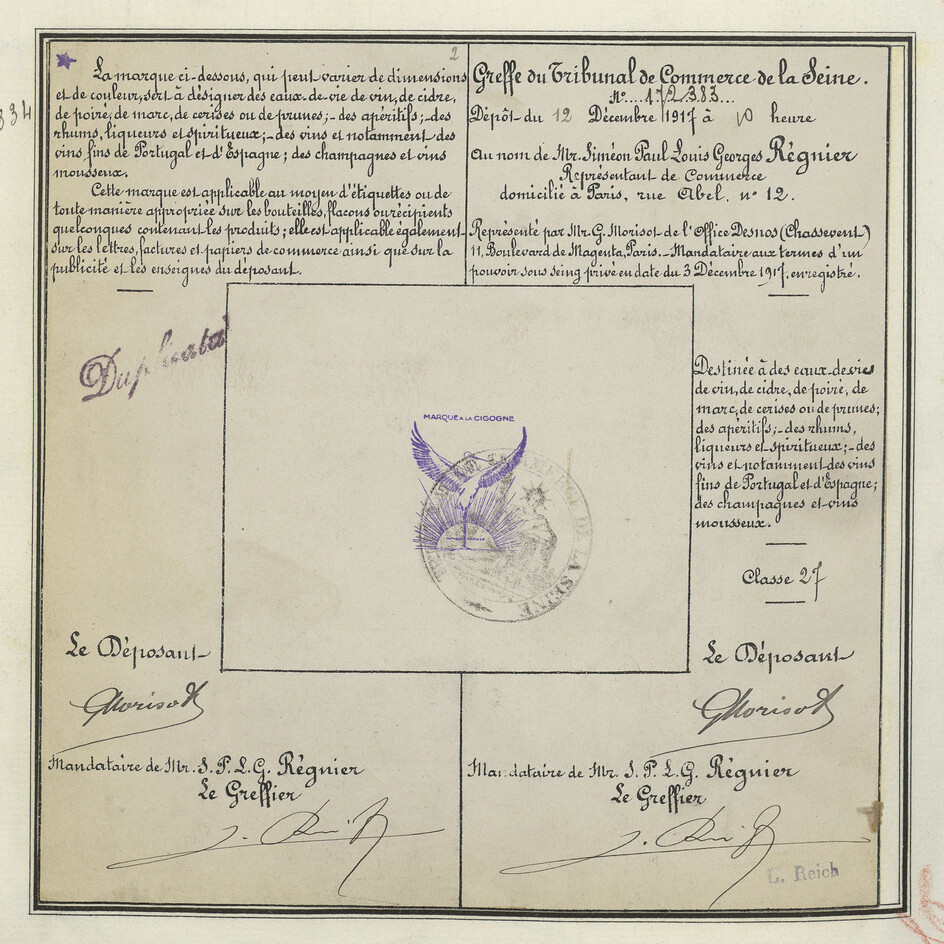 2
334
La marque ci-dessous, qui peut varier de dimensions
et de couleur, sert à désigner des eaux-de-vie de vin, de cidre,
de poiré, de marc, de cerises ou de prunes; - des apéritifs; - des
rhums, liqueurs et spiritueux; - des vins et notamment des
vins fins de Portugal et d'Espagne; des champagnes et vins
mousseux.
Cette marque est applicable au moyen d'étiquettes ou de
toute manière appropriée sur les bouteilles, flacons ou récipients
quelconques contenant les produits; elle est applicable également
sur les lettres, factures et papiers de commerce ainsi que sur la
publicité et les enseignes du déposant.
Greffe du Tribunal de Commerce de la Seine.
N° 172.383
Dépôt du 12 Décembre 1917 à 10 heure
au nom de Mr. Siméon Paul Louis Georges Régnier
Représentant de Commerce
domicilié à Paris, rue Abel, n° 12.
Représenté par Mr. G. Morisot de l'Office Desnos (Chassevent)
11, Boulevard de Magenta, Paris. - Mandataire aux termes d'un
pouvoir sous seing privé en date du 3 Décembre 1917, enregistré.
Duplicata
MARQUE A LA CIGOGNE
DE LA SEINE
Destinée à des eaux-de-vie
de vin, de cidre, de poiré, de
marc, de cerises ou de prunes;
des apéritifs; - des rhums,
liqueurs et spiritueux; - des
vins et notamment des vins
fins de Portugal et d'Espagne;
des champagnes et vins
mousseux.
Classe 27
Le Déposant
GMorisot
Mandataire de Mr. S. P. L. G. Régnier
Le Greffier
Le Déposant
GMorisot
Mandataire de Mr. S. P. L. G. Régnier
Le Greffier
L. Reich